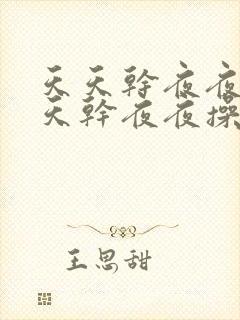 天天幹夜夜
天幹夜夜操
王思甜